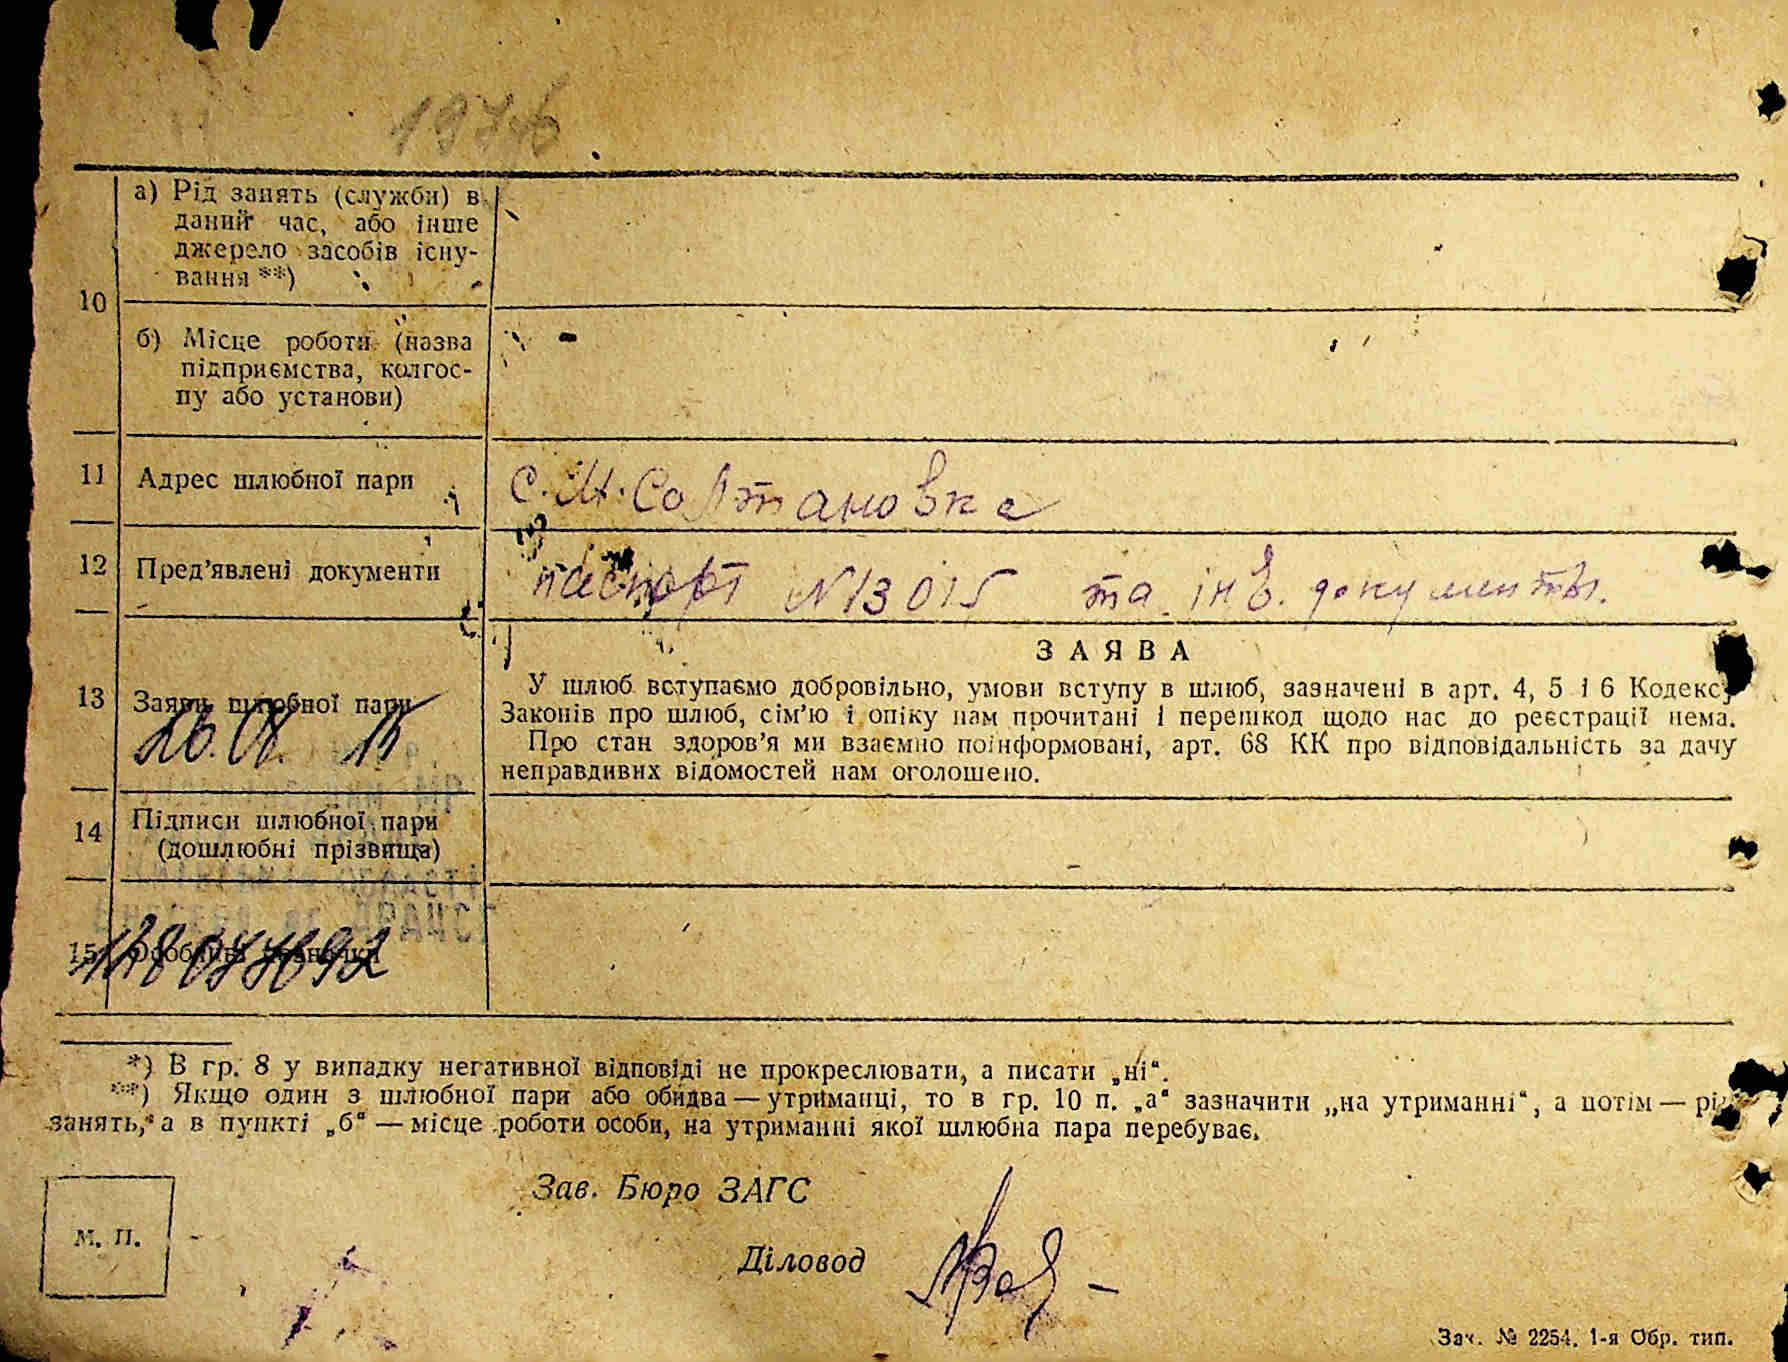 1946
10
а) Рід занять (служби) в
даний час, або інше
джерело засобів існу-
вання **)
б) Місце роботи (назва
підприємства, колгос-
пу або установи)
11
Адрес шлюбної пари
с. М. Солтановка
12
Пред’явлені документи
паспорт N 13015 та інв. документы.
13
Заява шлюбної пари
26.08. 15
ЗАЯВА
У шлюб вступаємо добровільно, умови вступу в шлюб, зазначені в арт. 4, 5 і 6 Кодексу
Законів про шлюб, сім’ю і опіку нам прочитані і перешкод щодо нас до реєстрації нема.
Про стан здоров’я ми взаємно поінформовані, арт. 68 КК про відповідальність за дачу
неправдивих відомостей нам оголошено.
14
Підписи шлюбної пари
(дошлюбні прізвища)
15
*) В гр. 8 у випадку негативної відповіді не прокреслювати, а писати „ні“.
**) Якщо один з шлюбної пари або обидва — утриманці, то в гр. 10 п. „а“ зазначити „на утриманні“, а потім — рід
занять, а в пункті „б“ — місце роботи особи, на утриманні якої шлюбна пара перебуває.
Зав. Бюро ЗАГС
М. П.
Діловод
Зач. № 2254. 1-я Обр. тип.